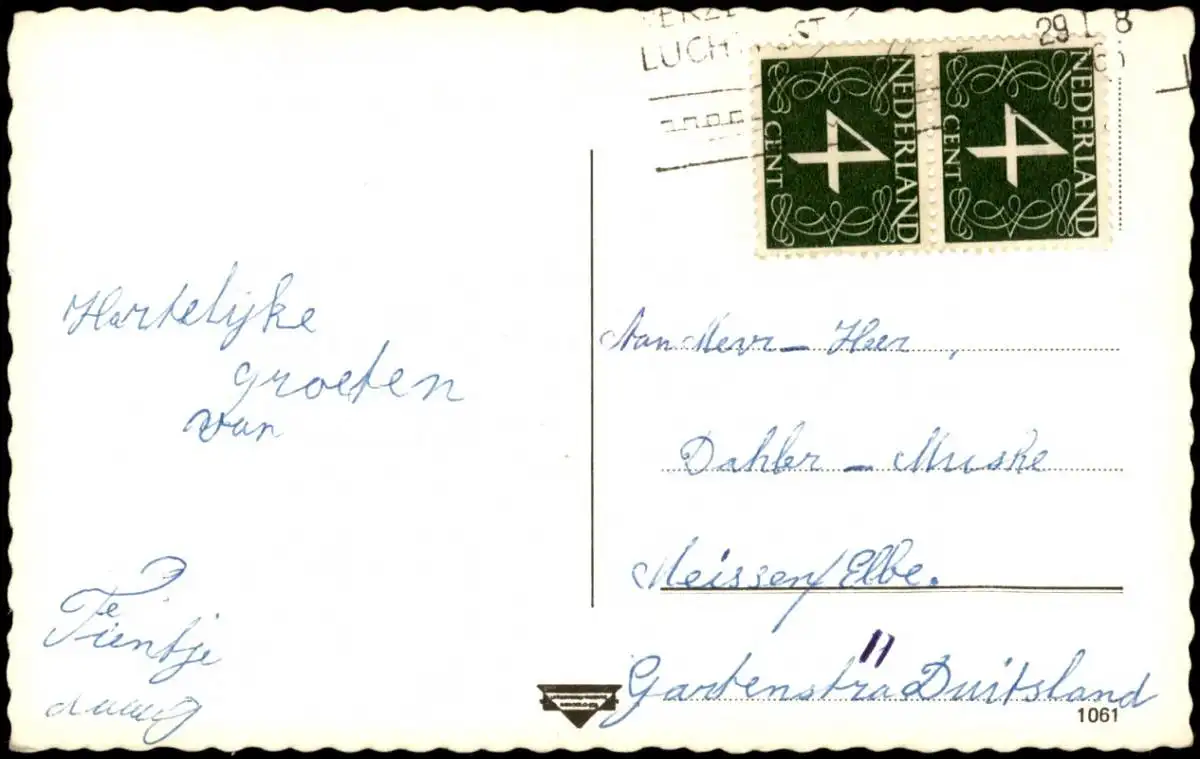 LUCHTPOST
29 I 8
NEDERLAND
4
CENT
NEDERLAND
4
CENT
Hartelijke
groeten
van
Fientje
Aan Mevr – Heer,
Dahler – Muske
Meissen/Elbe.
Gartenstra 11 Duitsland
1061